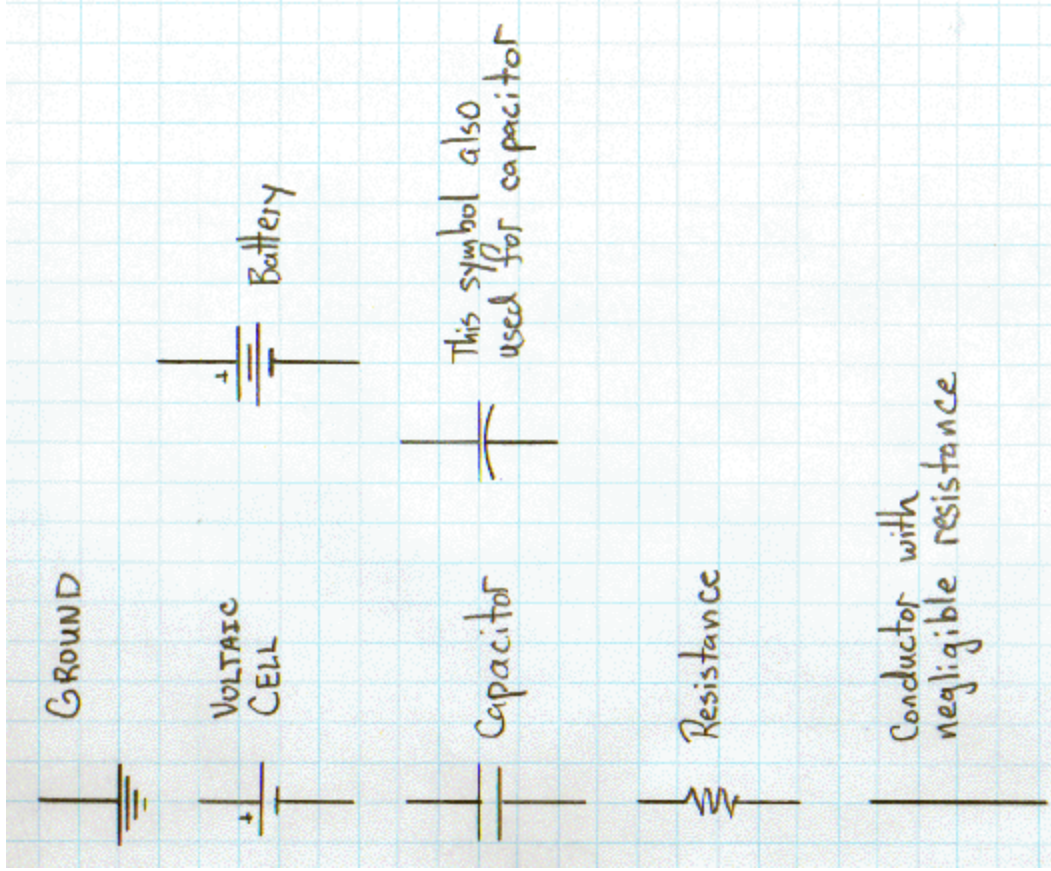 GROUND
VOLTAIC
CELL
+
Battery
+
Capacitor
This symbol also
used for capacitor
Resistance
Conductor with
negligible resistance